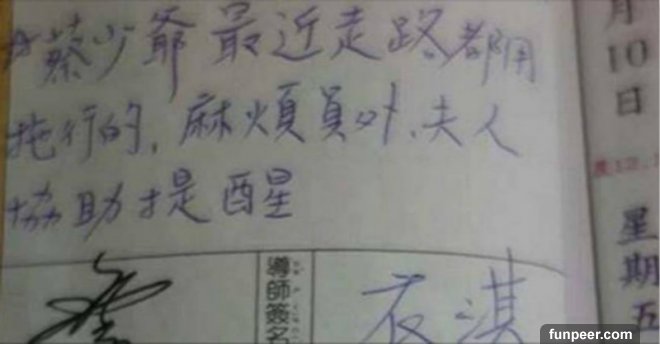 蔡少爺最近走路都用
拖行的，麻煩員外、夫人
協助提醒
導師簽名
月
10
日
星
期
五
funpeer.com